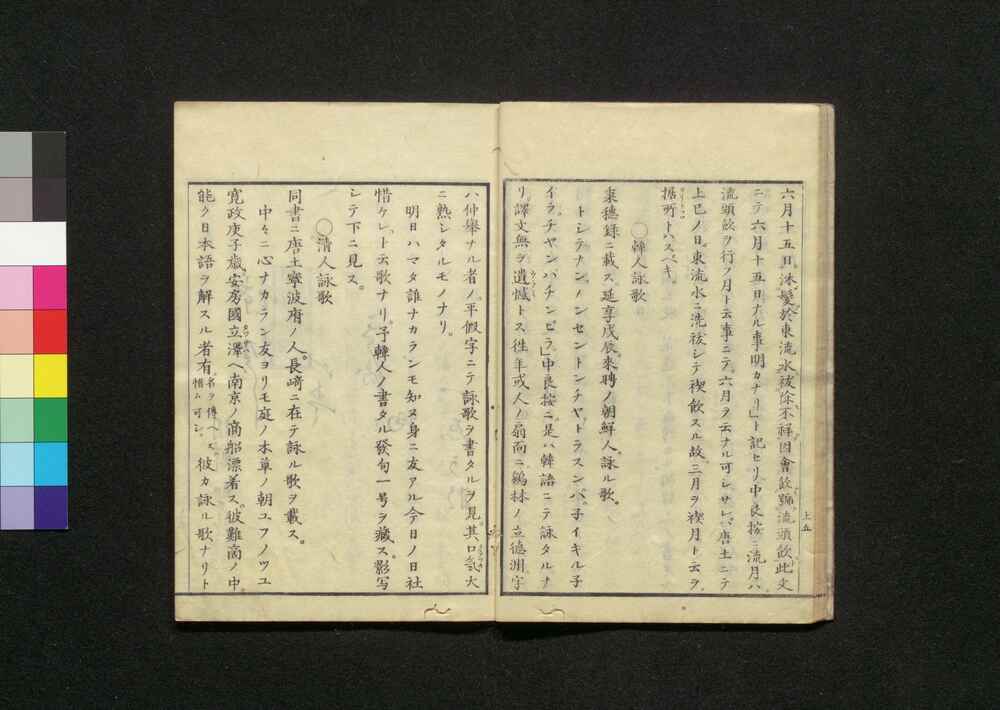 六月十五日沐髮於東流水祓除不祥因會飲號流頭飲此文
ニテ六月十五日ナル事明カナリ」ト記セリ中良按ニ流月ハ
流頭飲ヲ行フ月ト云事ニテ六月ヲ云ナル可シサレバ唐土ニテ
上巳ノ日東流水ニ洗祓シテ禊飲スル故三月ヲ禊月ト云ヲ
据所トハスベキ
○韓人詠歌
来穂録ニ載ス延享戊辰来聘ノ朝鮮人詠ル歌
トシテナンノセントンチヤトラスンバ子イキル子
イラチヤンバチンビラ」中良按ニ是ハ韓語ニテ詠タルナ
リ譯文無ヲ遺憾トス徃年或人ノ扇面ニ鶴林ノ立德淵字
上五
ハ仲擧ナル者ノ平假字ニテ詠歌ヲ書タルヲ見其口氣大
ニ熟シタルモノナリ
明日ハマタ誰ナカランモ知ヌ身ニ友アル今日ノ日社
惜ケレト云歌ナリ予韓人ノ書タル發句一号ヲ藏ス影写
シテ下ニ見ス
○清人詠歌
同書ニ唐土寧波府ノ人長﨑ニ在テ詠ル歌ヲ載ス
中々ニ心ナカラン友ヨリモ庭ノ木草ノ朝ユフノツユ
寛政庚子歳安房國立澤ヘ南京ノ商船漂着ス彼難商ノ中
能ク日本語ヲ解スル者有名ヲ傳ヘス惜ム可シ彼カ詠ル歌ナリト